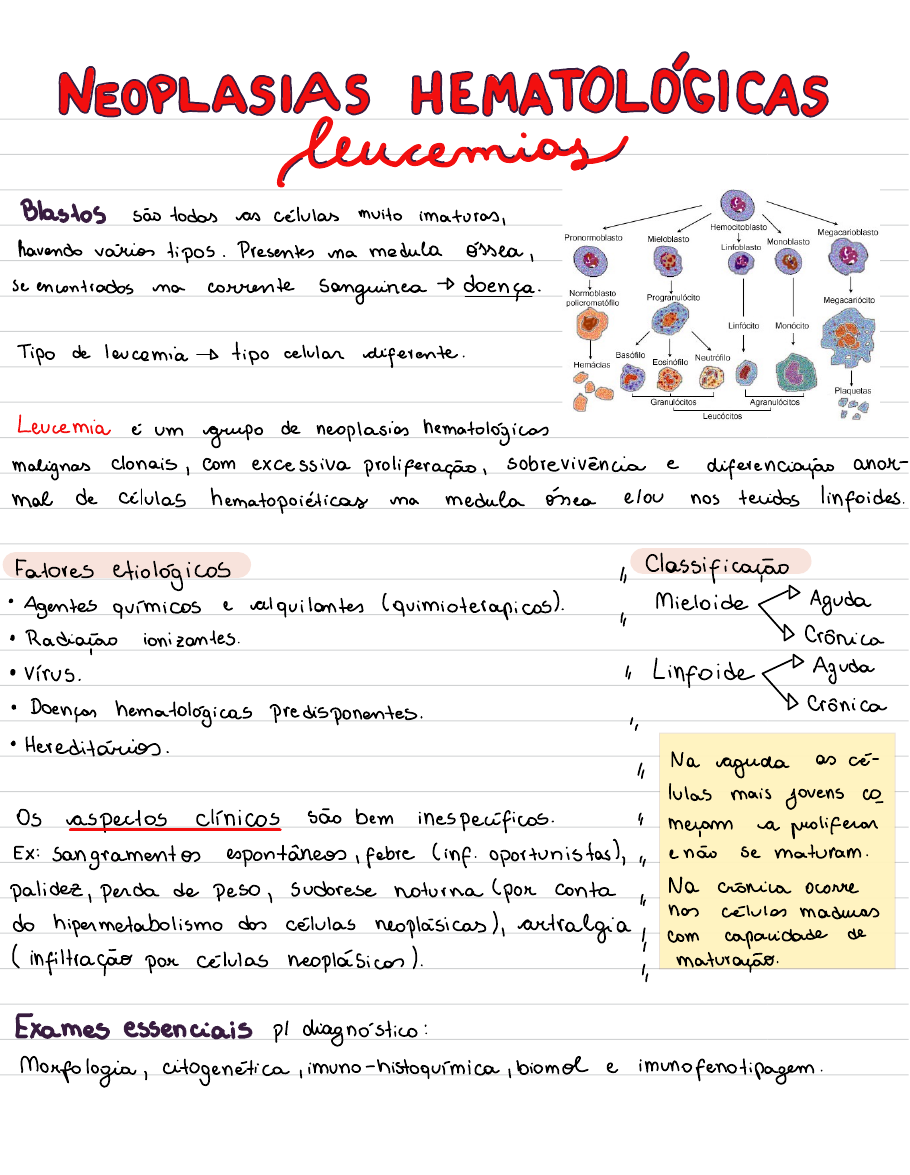 NEOPLASIAS HEMATOLÓGICAS
leucemias
Blastos são todas as células muito imaturas,
havendo vários tipos. Presentes na medula óssea,
se encontrados na corrente sanguinea → doença.
Tipo de leucemia → tipo celular diferente.
Hemocitoblasto
Pronormoblasto
Mieloblasto
Linfoblasto
Monoblasto
Megacarioblasto
Normoblasto
policromatófilo
Progranulócito
Linfócito
Monócito
Megacariócito
Hemácias
Basófilo
Eosinófilo
Neutrófilo
Plaquetas
Granulócitos
Agranulócitos
Leucócitos
Leucemia é um grupo de neoplasias hematológicas
malignas clonais, com excessiva proliferação, sobrevivência e diferenciação anor-
mal de células hematopoiéticas na medula óssea e/ou nos tecidos linfoides.
Fatores etiológicos
• Agentes químicos e alquilantes (quimioterapicos).
• Radiação ionizantes.
• Vírus.
• Doenças hematológicas predisponentes.
• Hereditários.
Classificação
Mieloide
Aguda
Crônica
Linfoide
Aguda
Crônica
Na aguda as cé-
lulas mais jovens co
meçam a proliferar
e não se maturam.
Na crônica ocorre
nas células maduras
com capacidade de
maturação.
Os aspectos clínicos são bem inespecíficos.
Ex: sangramentos espontâneos, febre (inf. oportunistas),
palidez, perda de peso, sudorese noturna (por conta
do hipermetabolismo das células neoplásicas), artralgia
(infiltração por células neoplásicas).
Exames essenciais p/ diagnóstico:
Morfologia, citogenética, imuno-histoquímica, biomol e imunofenotipagem.